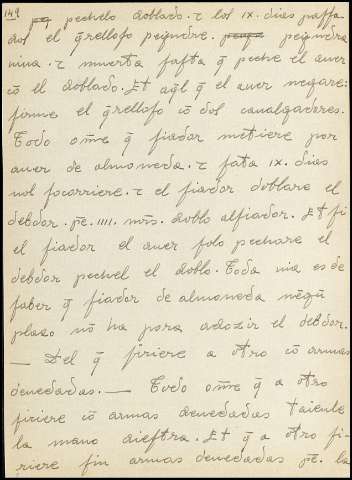 149
pechelo doblado. τ los ix. dias passa-
dos el q̃relloso peyndre. peyndra
uiua. τ muerta fasta q̃ peche el auer
cõ el doblado. Et aq̃l q̃ el auer negare:
firme el q̃relloso cõ dos caualgadores.
Todo om̃e q̃ fiador metiere por
auer de almoneda. τ fata ix. dias
nol socorriere. τ el fiador doblare el
debdor. pẽ. iiii. mrs̃. doblo al fiador. Et si
el fiador el auer solo pechare el
debdor pechel el doblo. Toda uia es de
saber q̃ fiador de almoneda nĩgũ
plazo nõ ha pora aduzir el debdor.
— Del q̃ firiere a otro cõ armas
deuedadas. — Todo om̃e q̃ a otro
firiere cõ armas deuedadas taiente
la mano diestra. Et q̃ a otro fi-
riere sin armas deuedadas pẽ. la